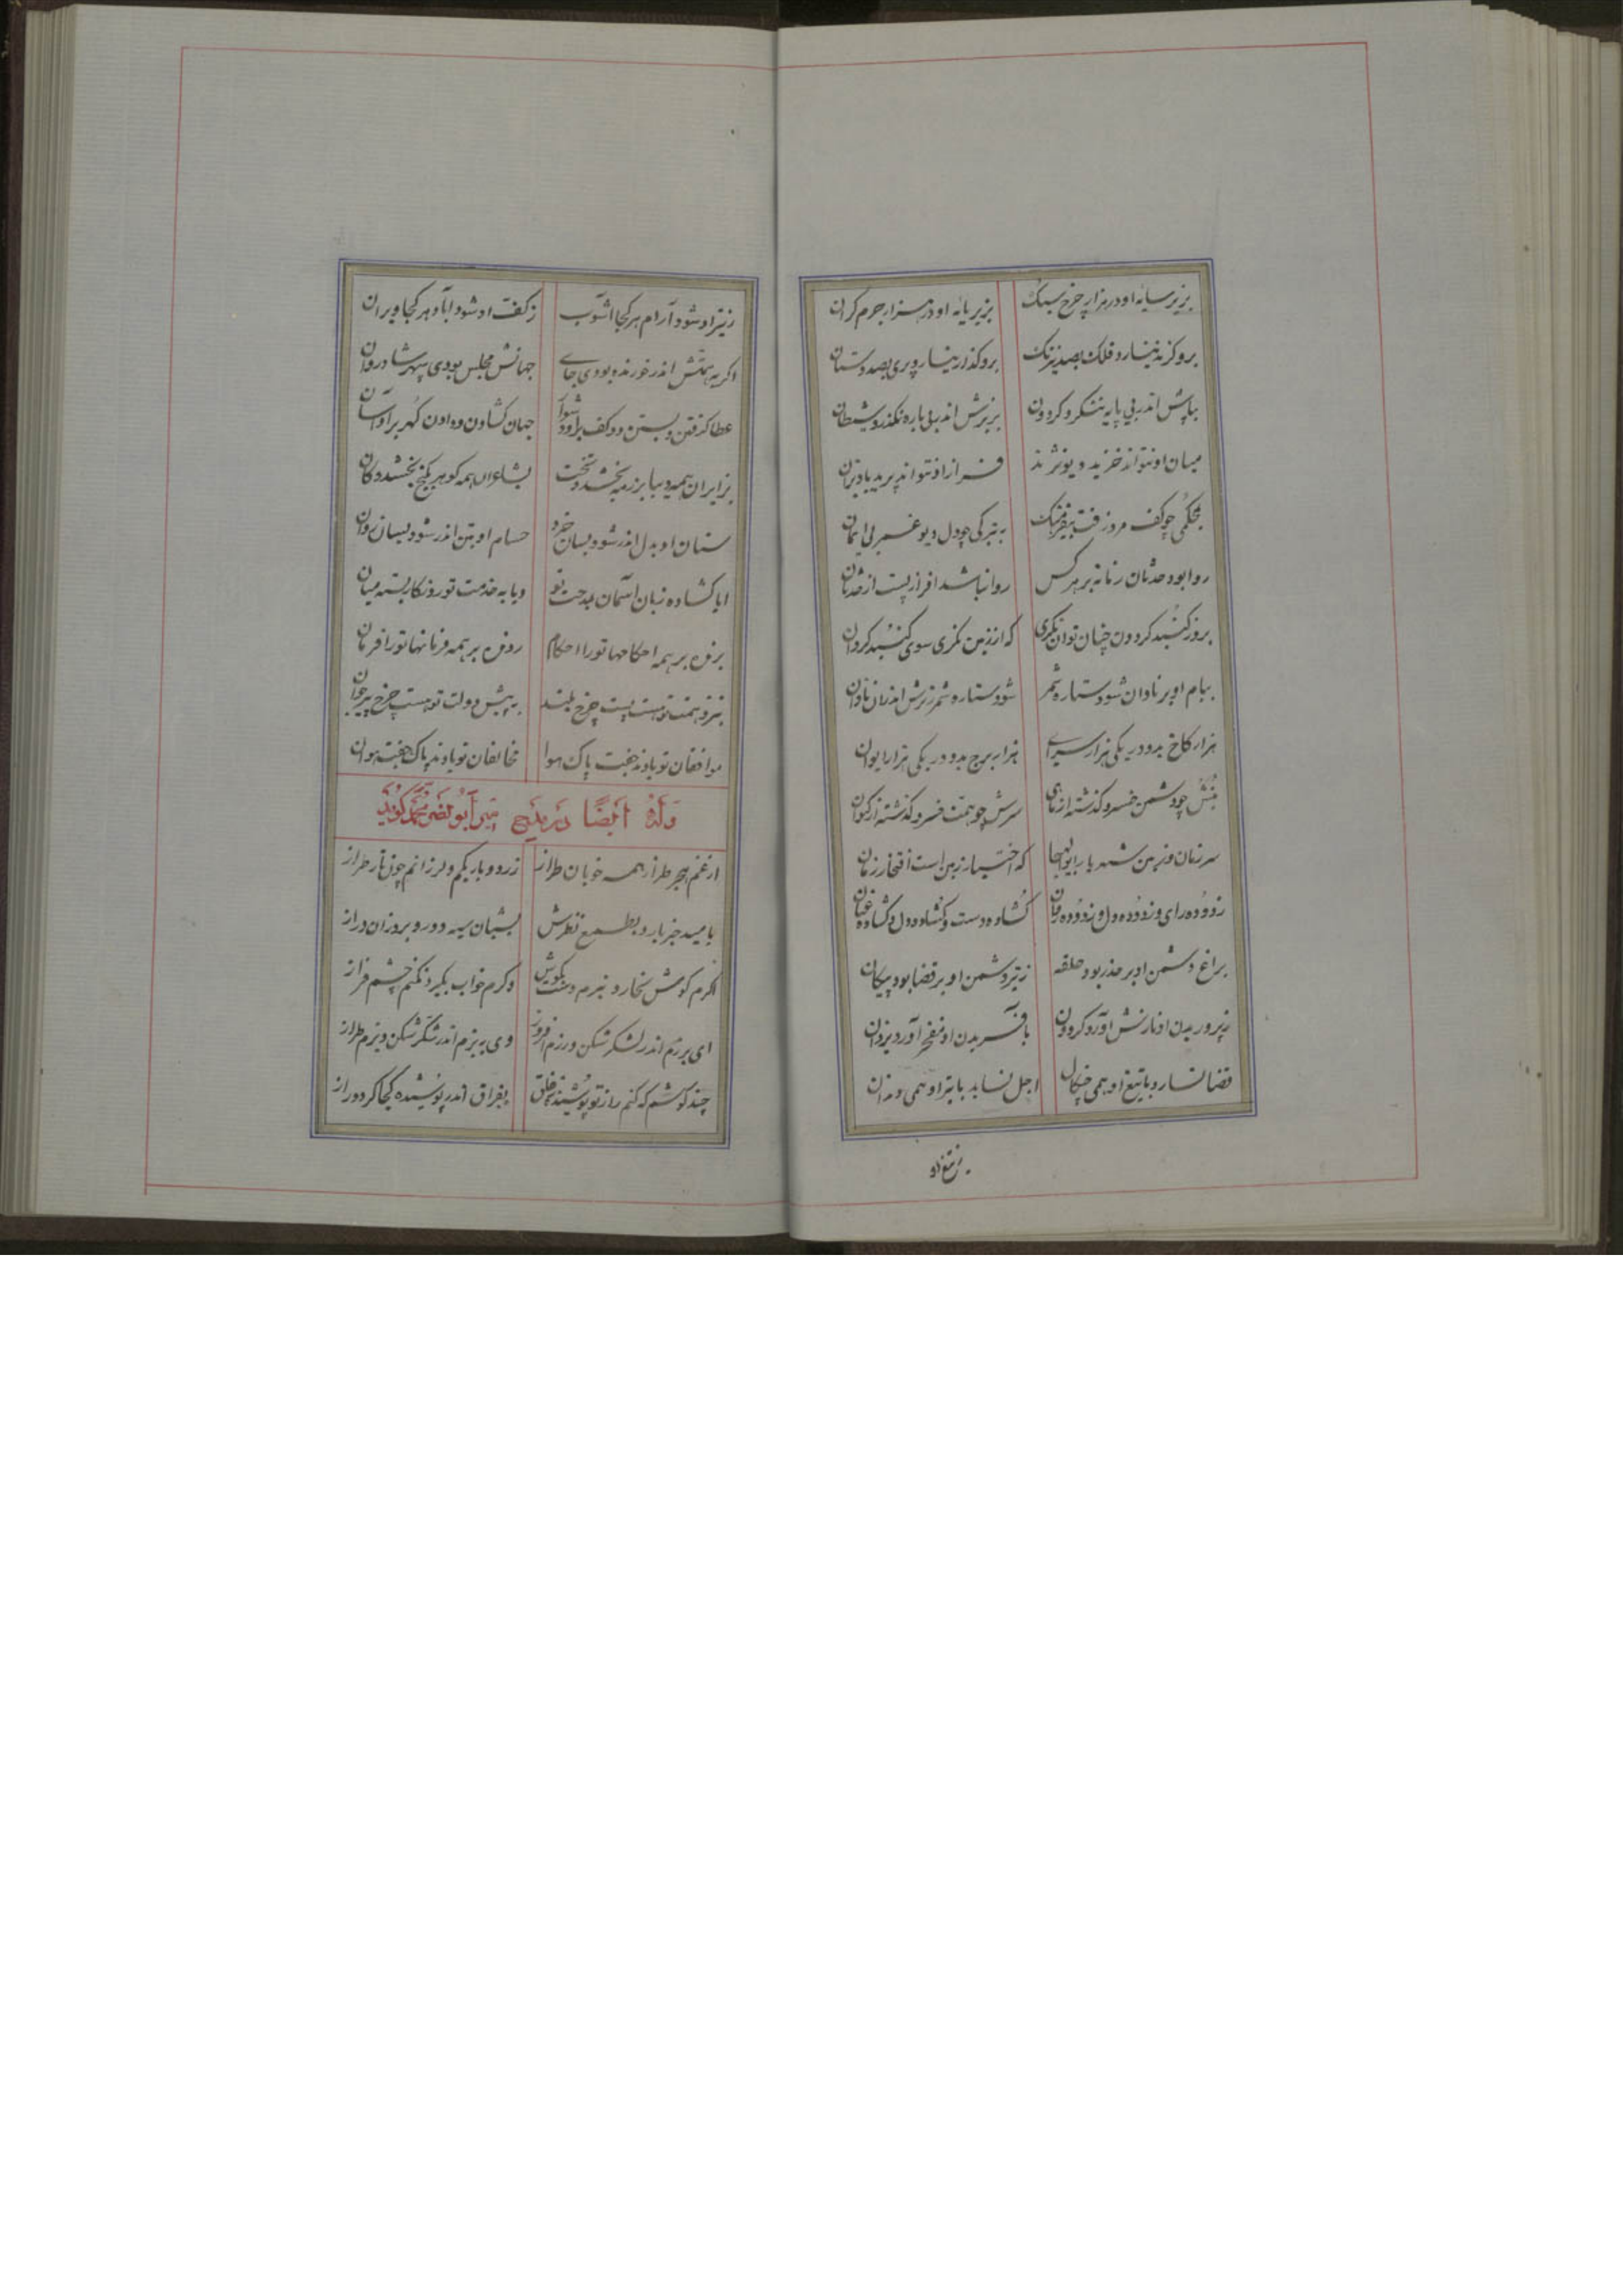 بزیر سایه او در هزار چرخ سبک بزیر پایه او در هزار جرم کران
برو کزند نیارد فلک بصد نیرنک برو کذار نیارد پری بصد دستان
بپاش اندر بی پایه ننکرد کردون بزبرش اندر بی باره نکذرد شیطان
میان او نتواند خزید دیو نژند فراز او نتواند پرید باد بزان
بمحکمی چو کف مرد زفت بی فرهنک به تیرکی چو دل دیو غمر بی ایمان
روا بود حدثان زمانه بر هر کس روا نباشد افراز پست از حدثان
بروز کنبد کردون چنان توان نکری که از زمین نکری سوی کنبد کردان
ببام او بر نادان شود ستاره شمر شود ستاره شمر زیرش اندران نادان
هزار کاخ بدو در یکی هزار سرای هزار برج بدو در یکی هزار ایوان
بنش چو دشمن خسرو کذشته از ماهی سرش چو همت خسرو کذشته از کیوان
سر زمان و زمین شهریار ابوالهیجا که اختیار زمین است افتخار زمان
زدوده رای و زدوده دل و زدوده روان کشاده دست و کشاده دل و کشاده عنان
براغ دشمن او بر حذر بود حلقه ز تیر دشمن او بر قضا بود پیکان
بپروریدن او نازش آورد کردون بآفریدن او مفخر آورد یزدان
قضا نسارد با تیغ او همی چنکال اجل نساید با تیر او همی دندان
ز تیغ او
ز تیغ او شود آرام هر کجا آشوب ز کف او شود آباد هر کجا ویران
اکر به همتش اندر خورنده بودی جای جهانش مجلس بودی سپهر شادروان
عطا کرفتن و بستن دو کف برو دشوار جهان کشادن و دادن کهر برو آسان
بزایران همه دیبا برزمه بخشد و تخت بشاعران همه کوهر بکنج بخشد و کان
سنان او بدل اندر شود بسان خرد حسام او بتن اندر شود بسان روان
ایا کشاده زبان آسمان بمدحت تو و یا به خدمت تو روزکار بسته میان
برفته بر همه احکامها تو را احکام روفه بر همه فرمانها تو را فرمان
بنزد همت تو هست پست چرخ بلند به پیش دولت تو هست چرخ پیر جوان
موافقان تو بادند جفت پاک هوا مخالفان تو بادند پاک جفت هوان
وله ایضا در مدح میر ابو نصر محمد کوید
از غم هجر طراز همه خوبان طراز زرد و باریکم و لرزانم چون تار طراز
بامید خبر یار و بطمع نظرش بشبان سیه دور و بروزان دراز
اکرم کوش نخارد نبرم دست بکوش وکرم خواب بکیرد نکنم چشم فراز
ای برزم اندر لشکر شکن و رزم افروز وی به بزم اندر شکر شکن و بزم طراز
چند کوشم که کنم راز تو پوشیده ز خلق بفراق اندر پوشیده کجا کردد راز